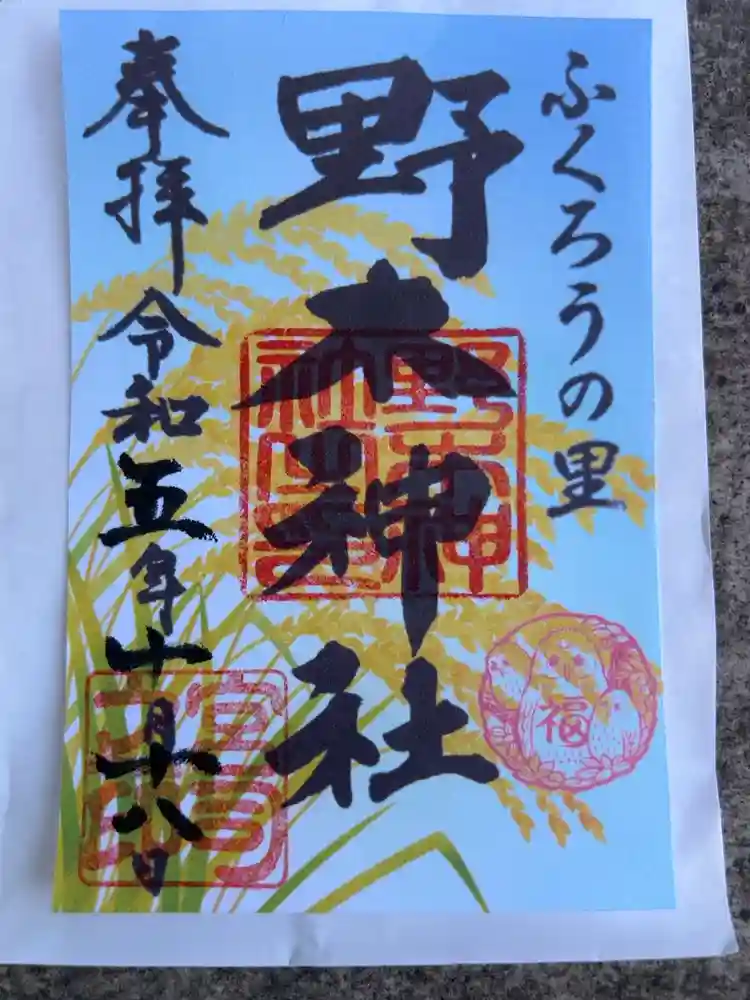 ふくろうの里
野木神社
奉拝 令和五年十月十八日
野木神社
福